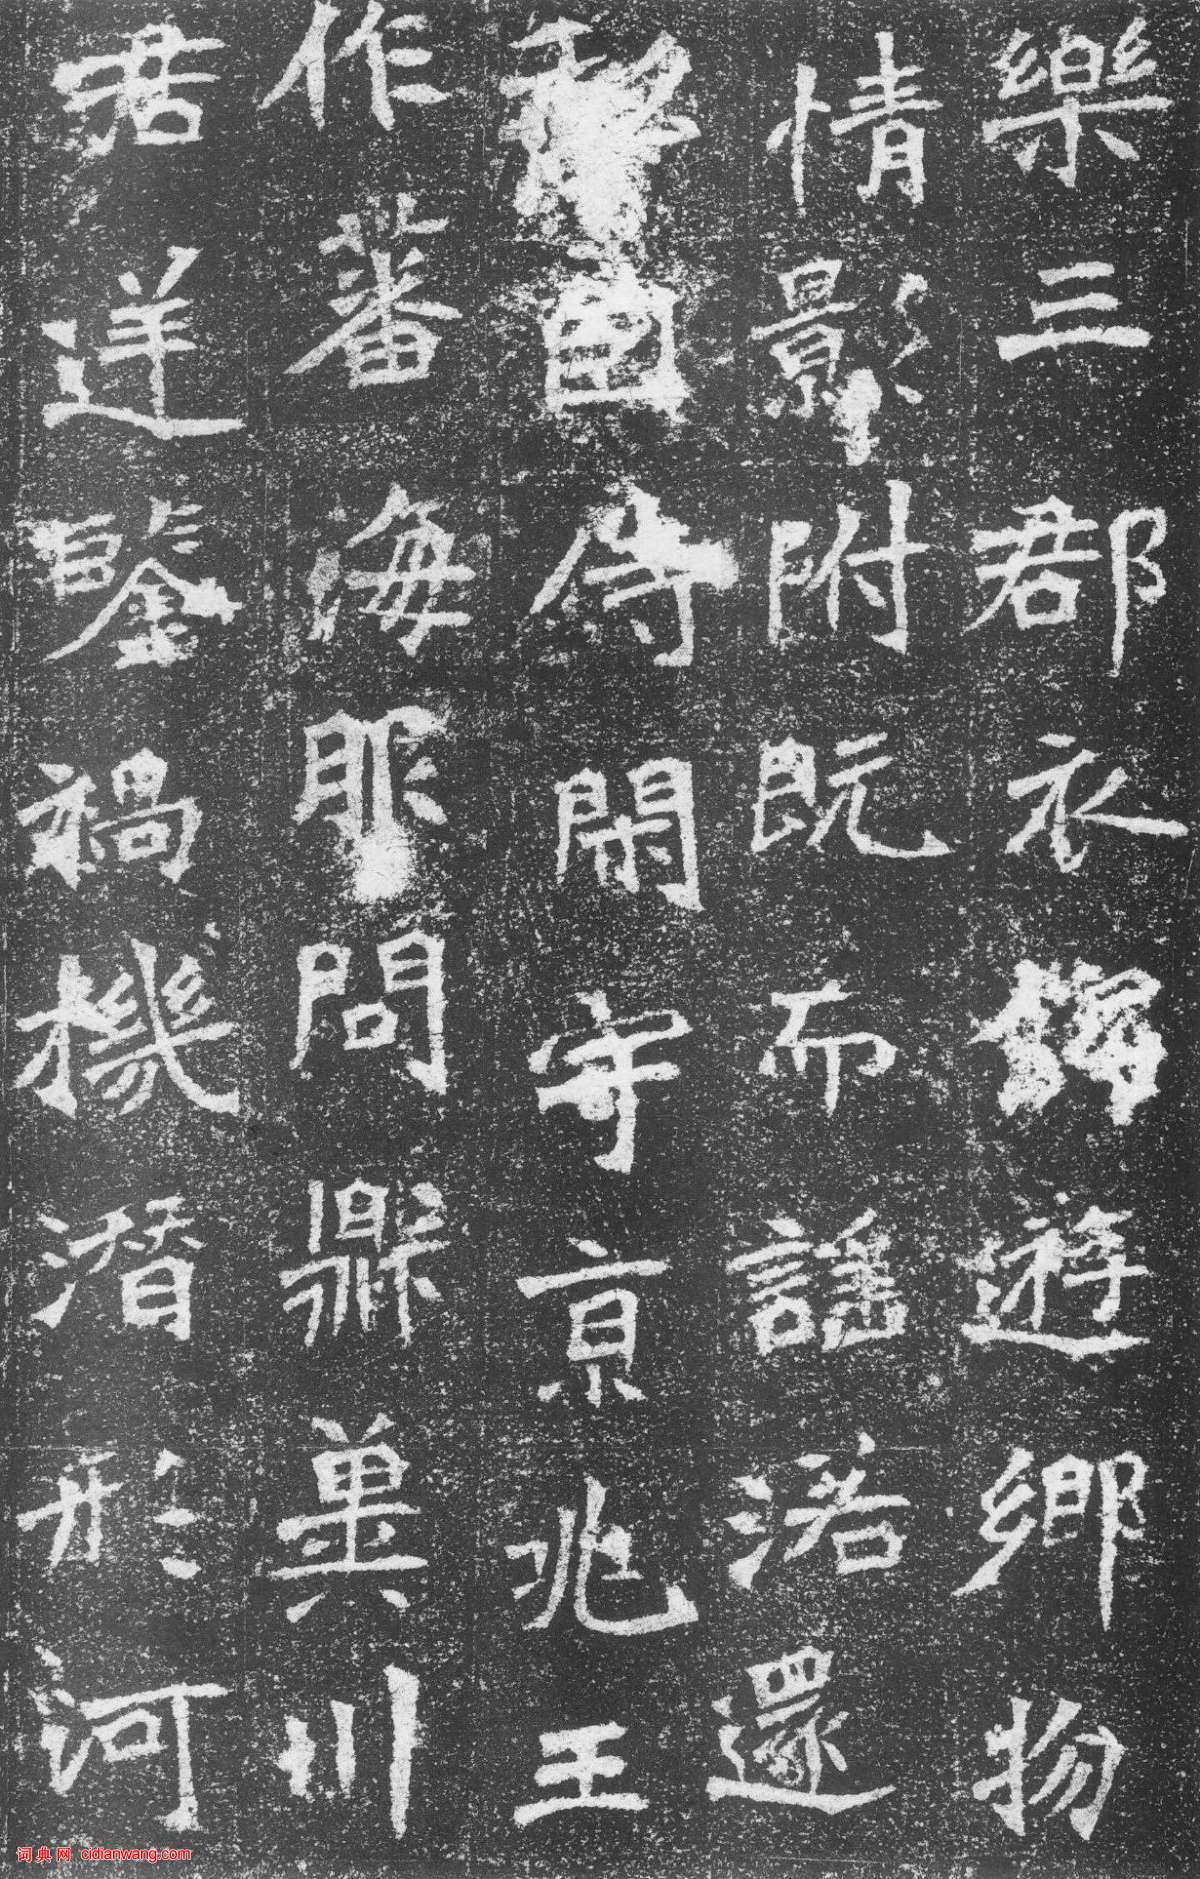 樂三郡衣錦遊鄉物
情影附既而謠洛還
侍閑宇京兆王
作蕃海服問鼎冀川
君逆鑒禍機潛形河
词典网 cidianwang.com